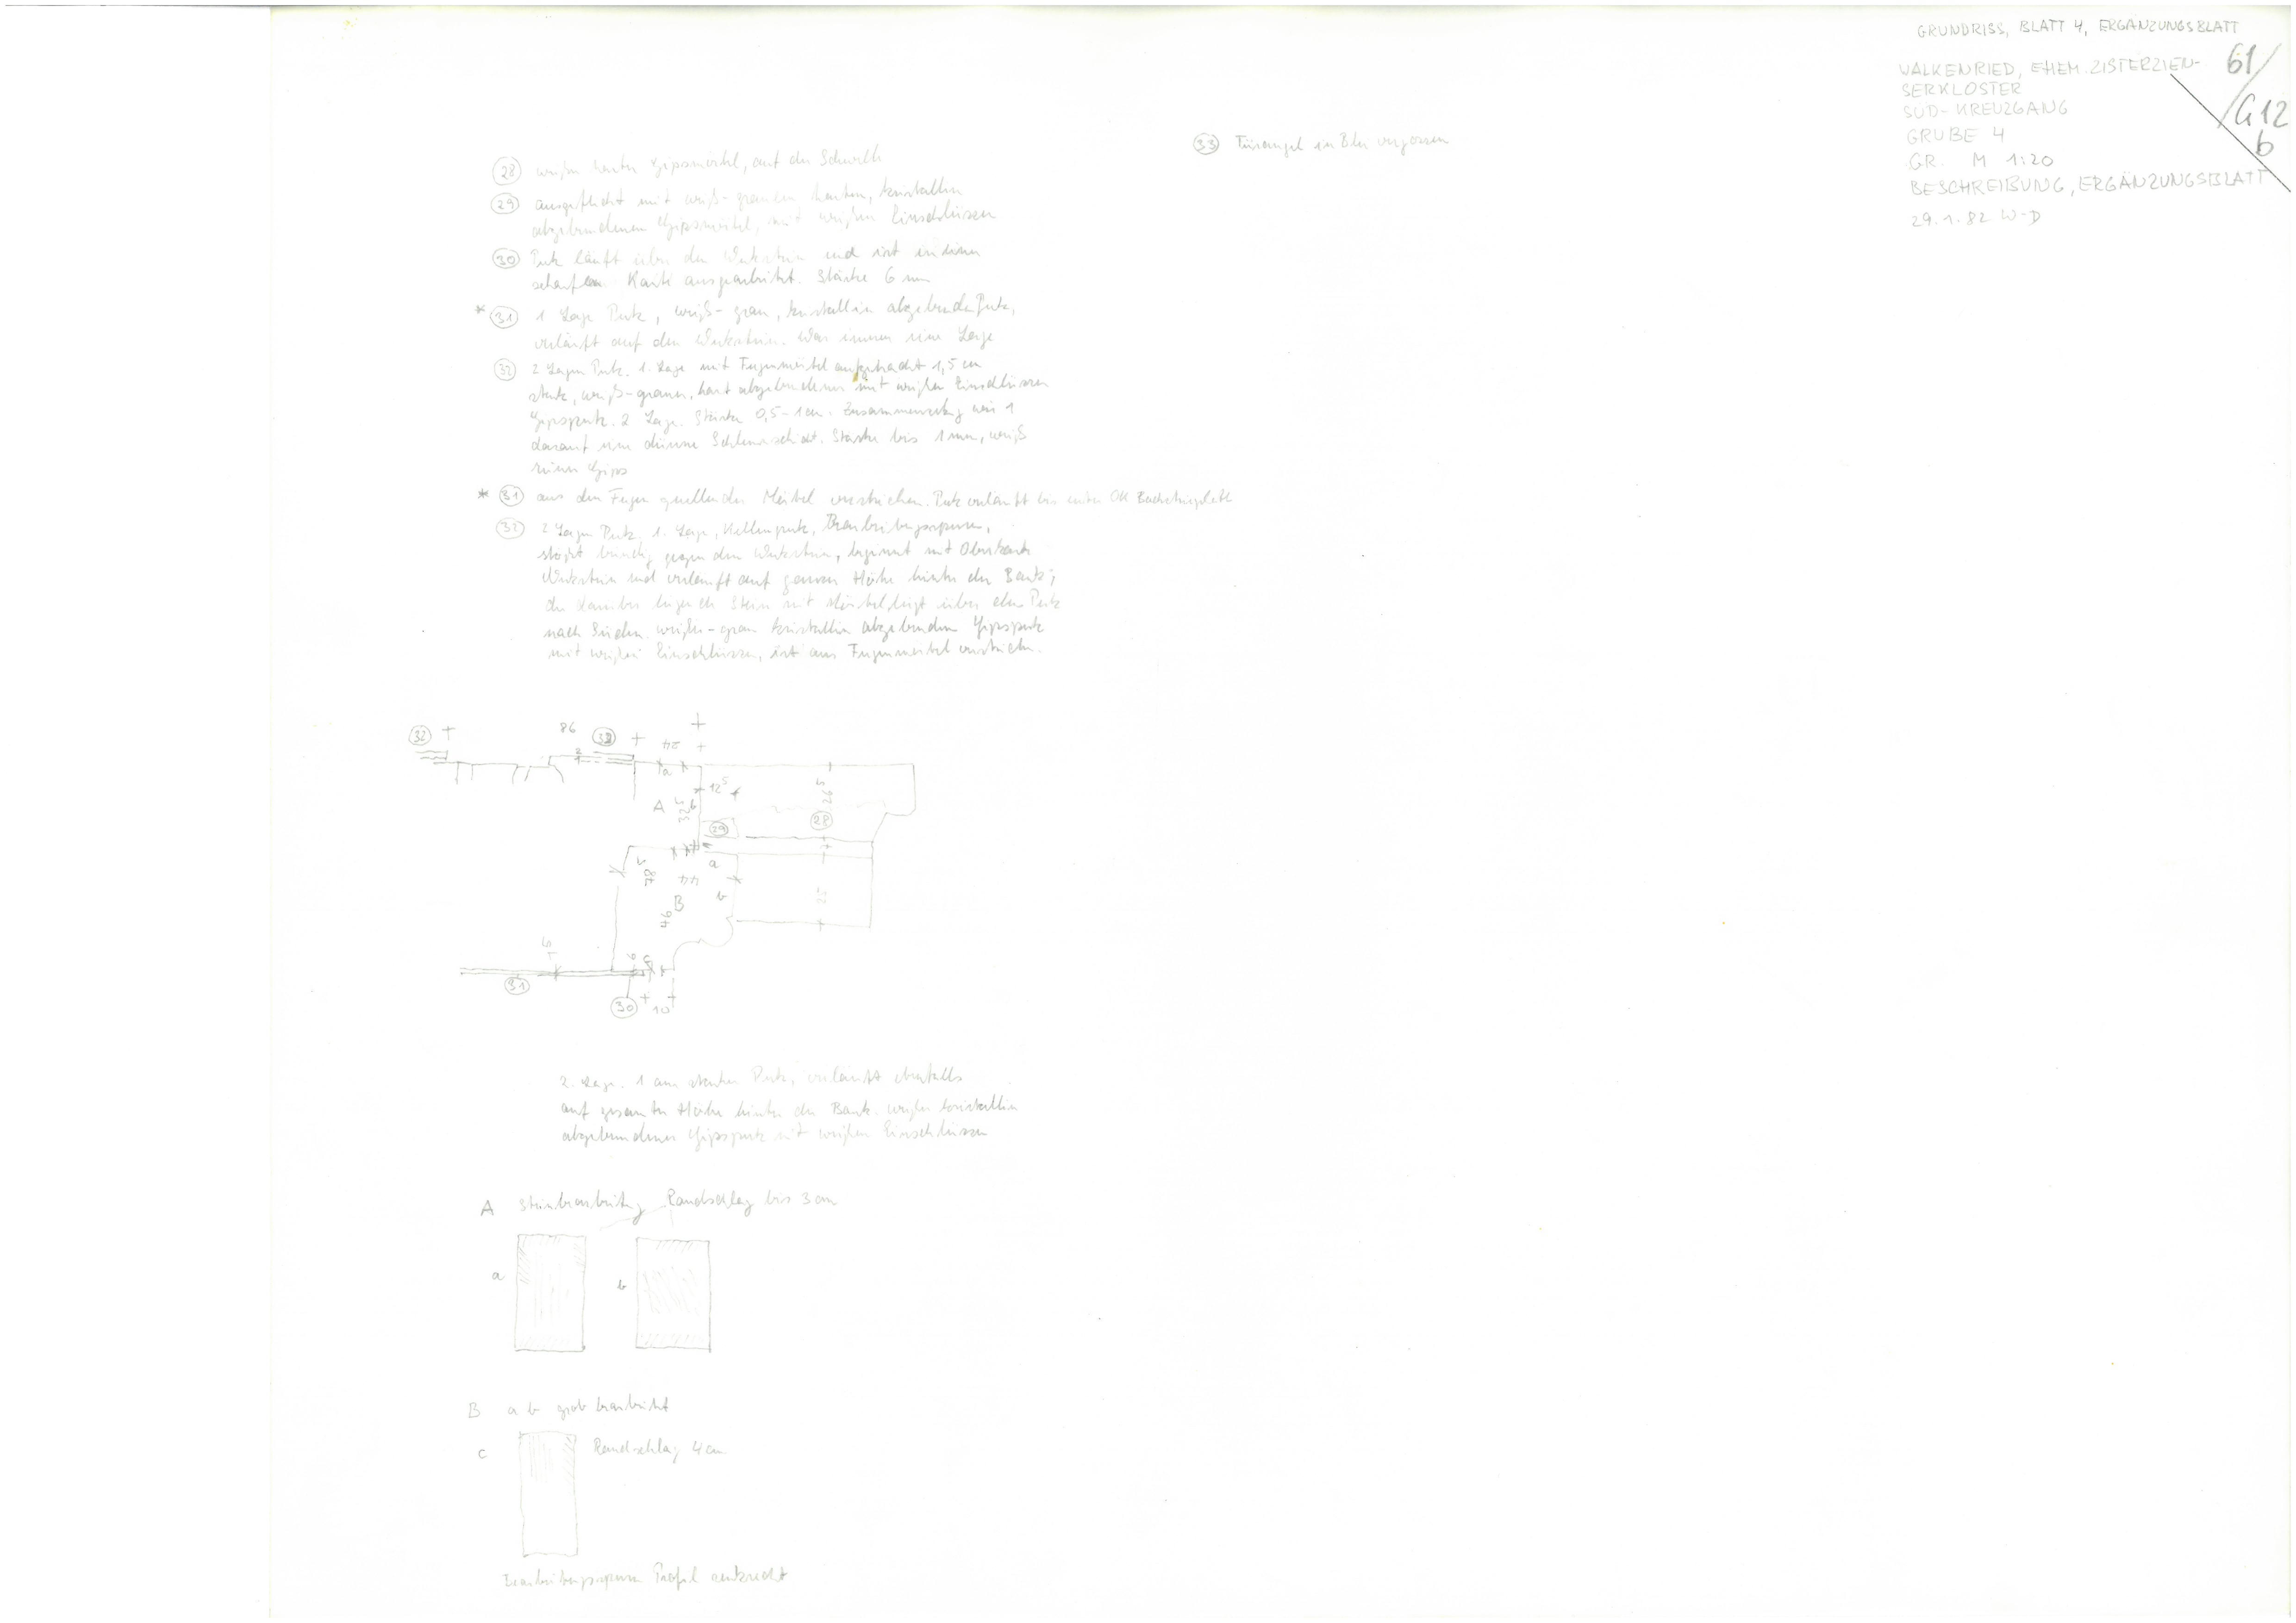 GRUNDRISS, BLATT 4, ERGÄNZUNGSBLATT
WALKENRIED, EHEM. ZISTERZIEN-
SERKLOSTER
SÜD-KREUZGANG
GRUBE 4
GR. M 1:20
BESCHREIBUNG, ERGÄNZUNGSBLATT
29.1.82 W-D
61/
G12
b
28 weißer harter Gipsmörtel, auf der Schwelle
29 ausgeflickt mit weiß-grauem harten, kristallin
abgebundenem Gipsmörtel, mit weißen Einschlüssen
30 Putz läuft über den Werkstein und ist in einer
scharfen Kante ausgearbeitet. Stärke 6 mm
* 31 1 Lage Putz, weiß-grau, kristallin abgebunde Putz,
verläuft auf den Werkstein. War immer eine Lage
32 2 Lagen Putz. 1. Lage mit Fugenmörtel aufgebracht 1,5 cm
stark, weiß-grauer, hart abgebundener mit weißen Einschlüssen
Gipsputz. 2 Lage. Stärke 0,5-1 cm. Zusammensetzung wie 1
darauf eine dünne Schlemmschicht. Stärke bis 1 mm, weiß
reiner Gips
* 31 aus den Fugen quellender Mörtel verstrichen. Putz verläuft bis unter OK Backsteinplatte
32 2 Lagen Putz. 1. Lage, Kellenputz, Bearbeitungsspuren,
stößt bündig gegen den Werkstein, beginnt mit Oberkante
Werkstein und verläuft auf ganzer Höhe hinter der Bank;
der darüber liegende Stein mit Mörtel, liegt über dem Putz
nach Süden. weißer-grau kristallin abgebundener Gipsputz
mit weißen Einschlüssen, ist aus Fugenmörtel verstrichen.
33 Türangel in Blei vergossen
32
86
33
24
2
1
a
12 5
A
32 5
b
26 5
29
28
a
28 5
44
B
46
b
25
31
30
10
2. Lage. 1 cm starker Putz, verläuft ebenfalls
auf gesamter Höhe hinter der Bank. weißer kristallin
abgebundener Gipsputz mit weißen Einschlüssen
A Steinbearbeitung Randschlag bis 3 cm
a
b
B a b grob bearbeitet
c Randschlag 4 cm
Bearbeitungsspuren Profil senkrecht